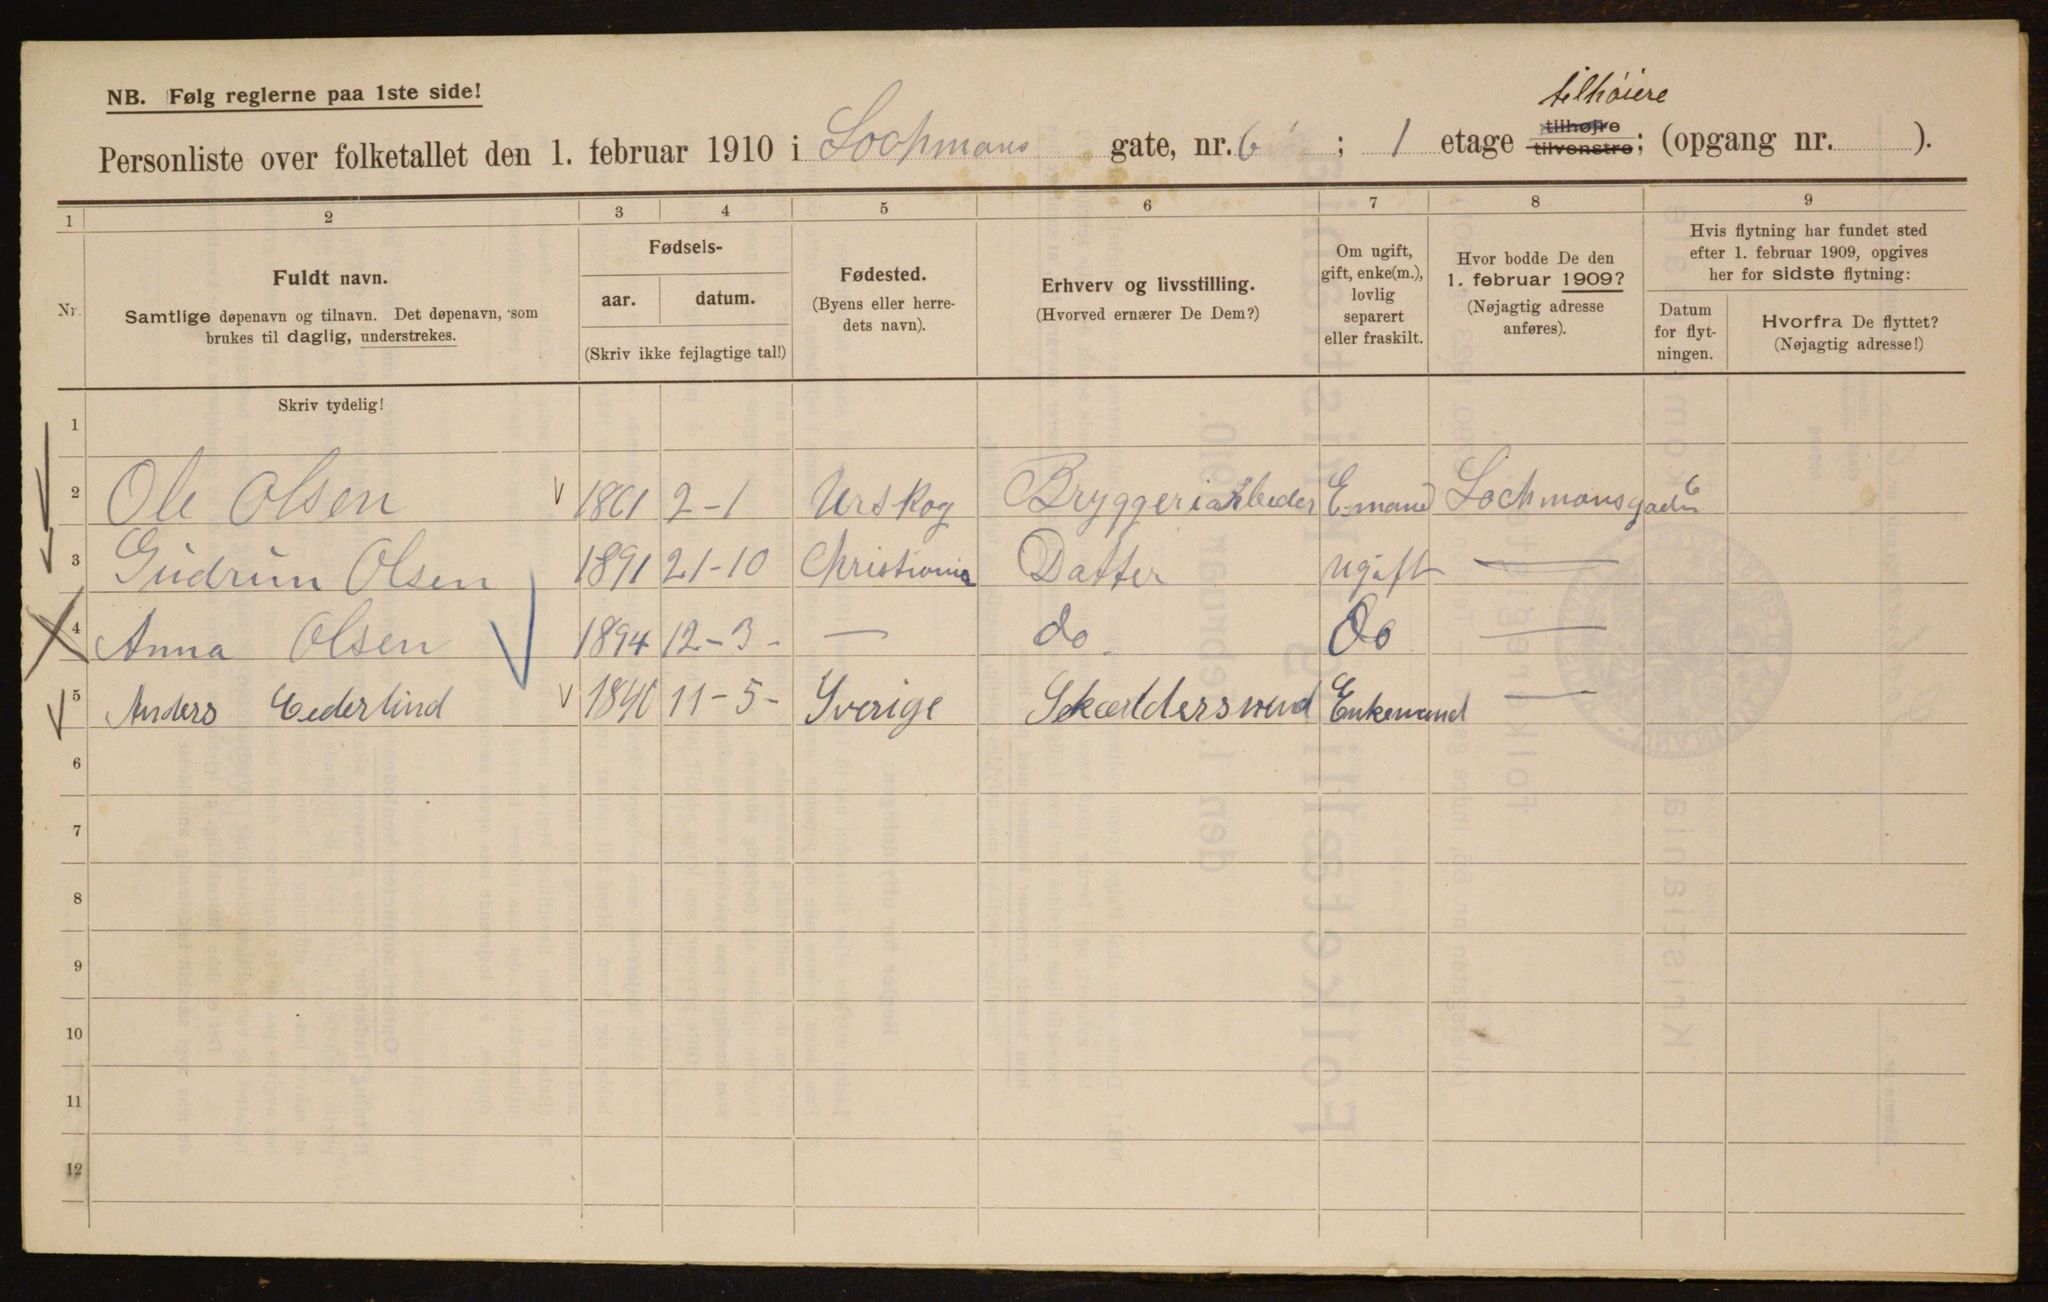 NB. Følg reglerne paa 1ste side!
tilhøiere
Personliste over folketallet den 1. februar 1910 i Lochmans gate, nr. 6 ; 1 etage tilhøjre tilvenstre; (opgang nr. ).
1 2 3 4 5 6 7 8 9
Nr.
Fuldt navn.
Samtlige døpenavn og tilnavn. Det døpenavn, som
brukes til daglig, understrekes.
Fødsels-
aar. datum.
(Skriv ikke fejlagtige tal!)
Fødested.
(Byens eller herre-
dets navn).
Erhverv og livsstilling.
(Hvorved ernærer De Dem?)
Om ugift,
gift, enke(m.),
lovlig
separert
eller fraskilt.
Hvor bodde De den
1. februar 1909?
(Nøjagtig adresse
anføres).
Hvis flytning har fundet sted
efter 1. februar 1909, opgives
her for sidste flytning:
Datum
for flyt-
ningen.
Hvorfra De flyttet?
(Nøjagtig adresse!)
Skriv tydelig!
1
2 Ole Olsen 1861 2-1 Urskog Bryggeriarbeder E-mand Lochmansgaden 6
3 Gudrun Olsen 1891 21-10 Christiania Datter ugift —
4 Anna Olsen 1894 12-3- — do Do —
5 Anders Cederlind 1840 11-5- Sverige Skræddersvend Enkemand —
6
7
8
9
10
11
12